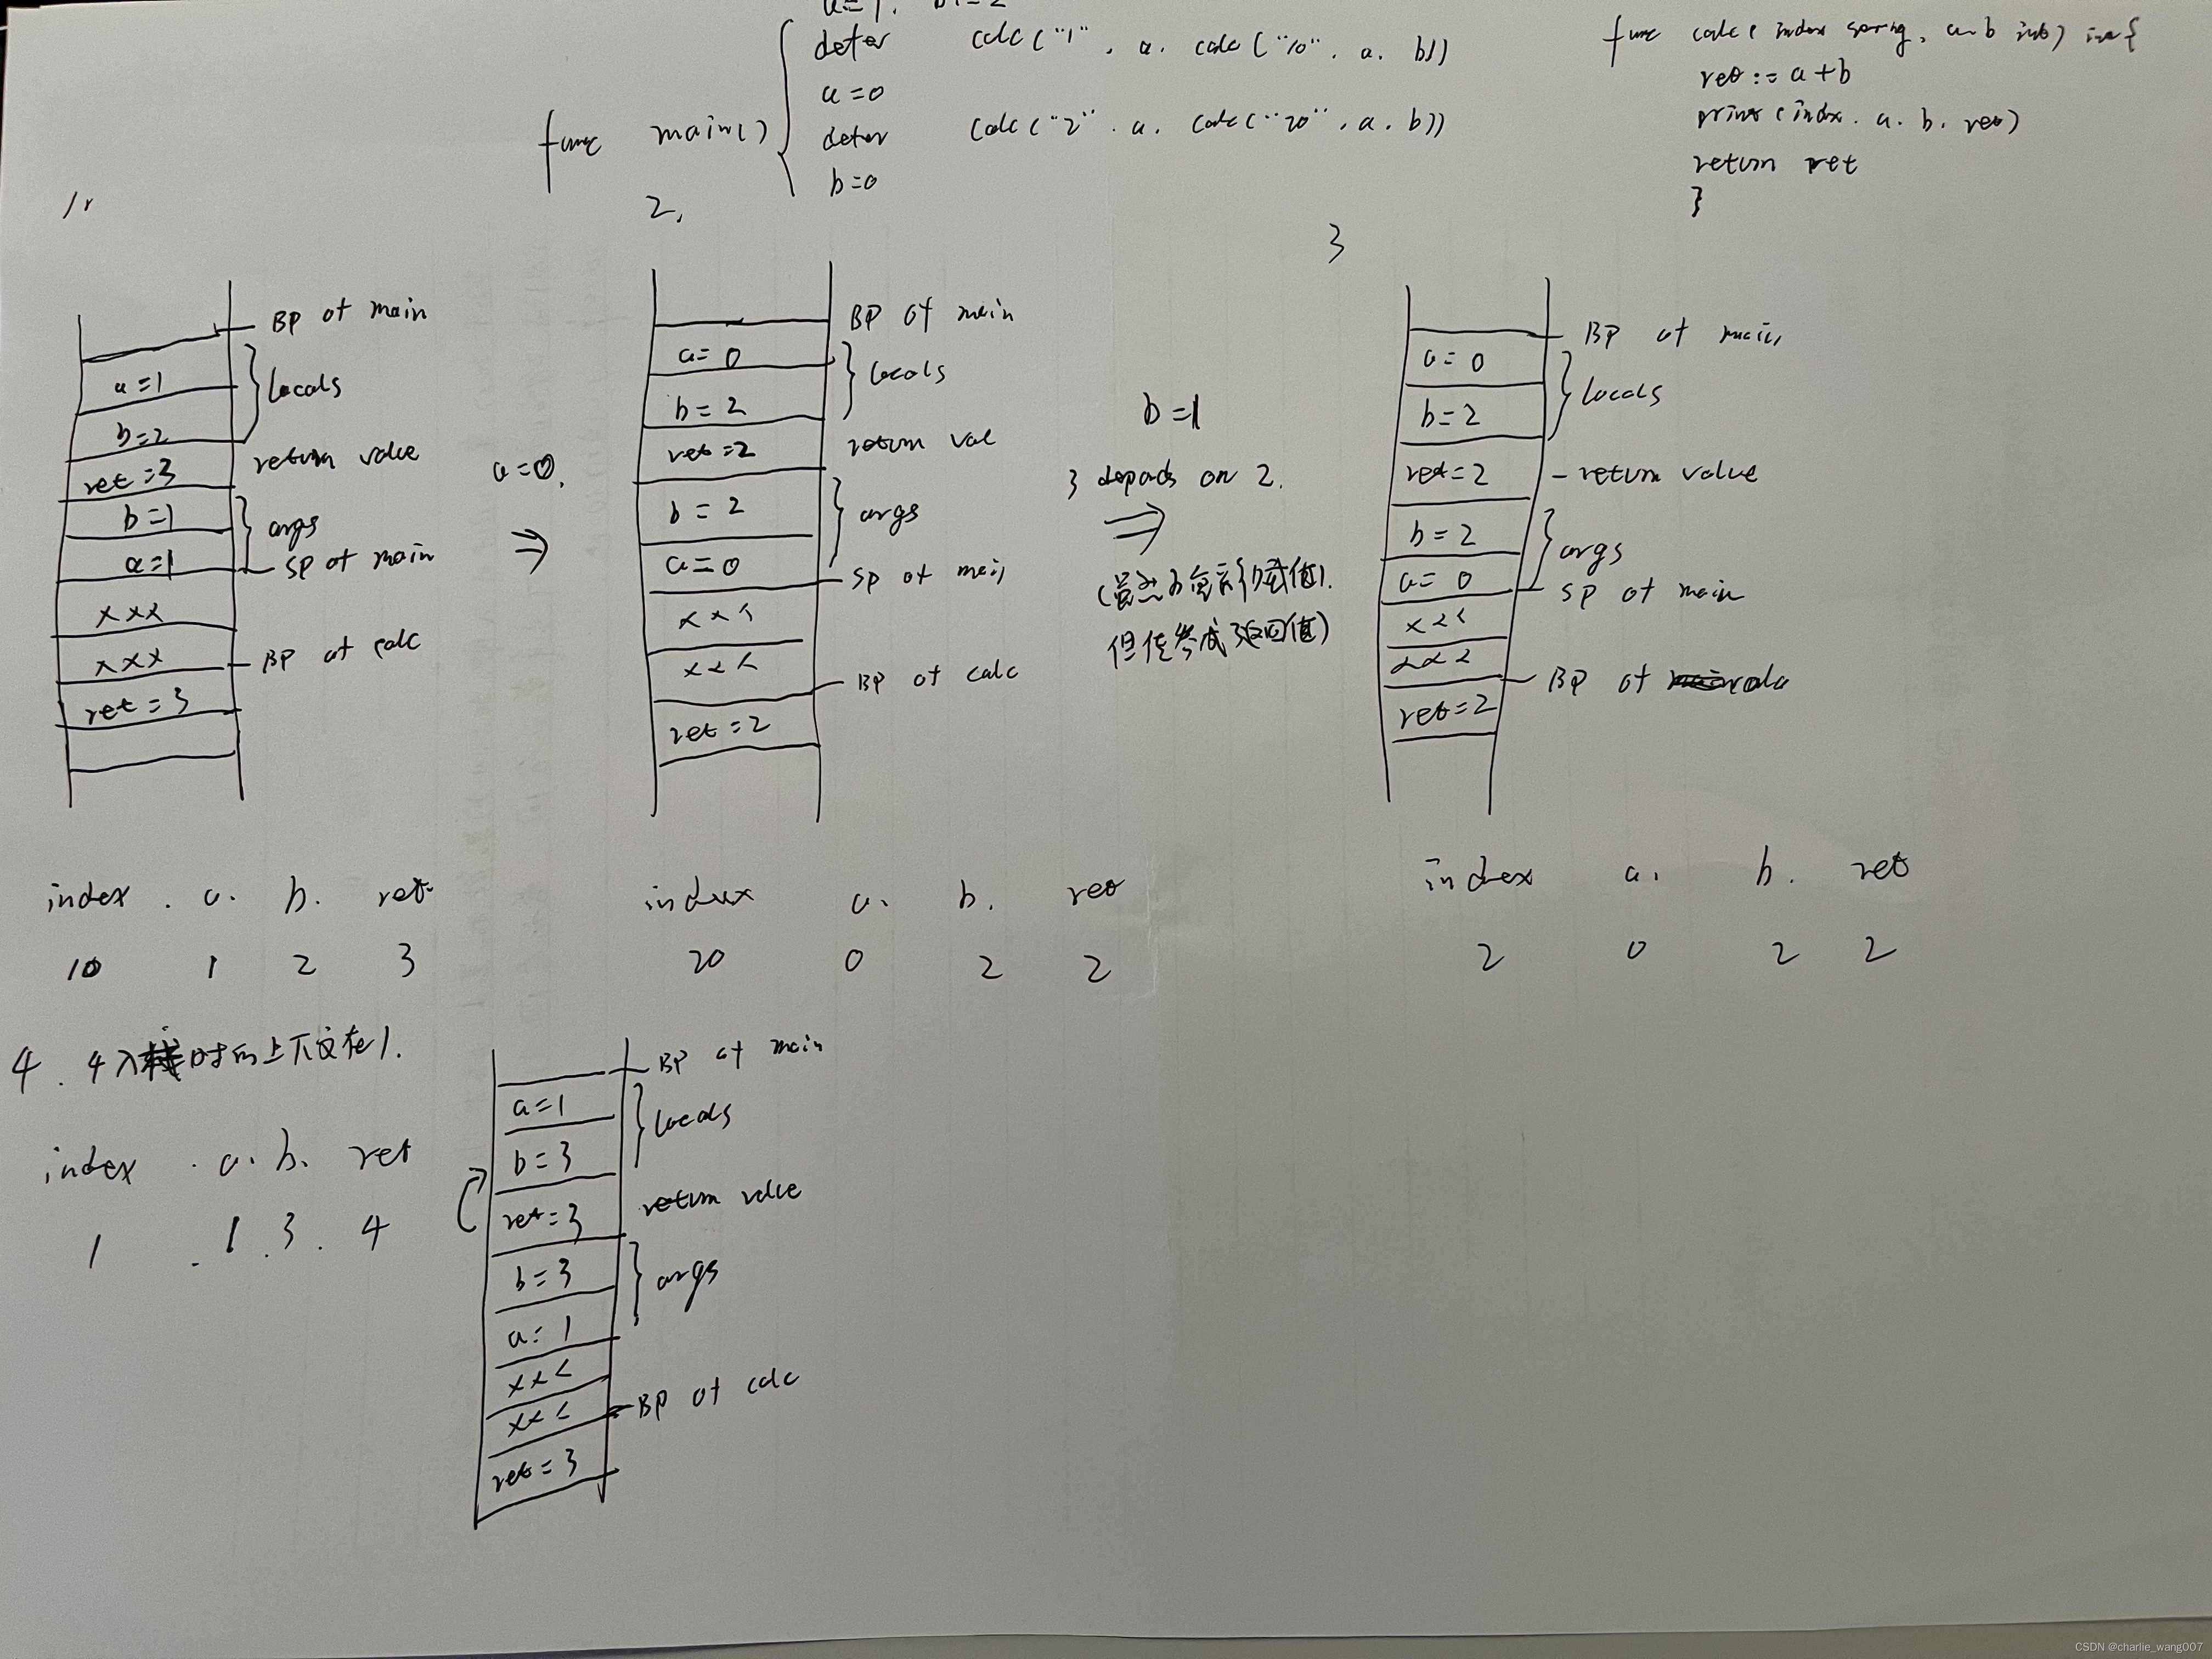 a=1. b:=2
defer calc("1", a. calc("10", a. b))
a=0
func main() {
defer calc("2". a. calc("20", a. b))
b=0
func calc( index string, a b int) int {
ret := a+b
print(index. a. b. ret)
return ret
}
1.
BP of main
a=1
locals
b=2
ret=3
return value
b=1
args
a=1
SP of main
xxx
xxx
BP of calc
ret=3
a=0.
⇒
2.
BP of main
a=0
locals
b=2
ret=2
return val
b=2
args
a=0
SP of main
xxx
xxx
BP of calc
ret=2
b=1
3 depends on 2.
⇒
但传参成了返回值)
3
BP of main
a=0
locals
b=2
ret=2
- return value
b=2
args
a=0
SP of main
xxx
xxx
BP of calc
ret=2
index . a. b. ret
10 1 2 3
index a. b. ret
20 0 2 2
index a. b. ret
2 0 2 2
4. 4入栈时的上下文在1.
index . a. b. ret
1 . 1 . 3 . 4
BP of main
a=1
locals
b=3
ret=3
return value
b=3
args
a=1
xxx
xxx
BP of calc
ret=3
CSDN @charlie_wang007